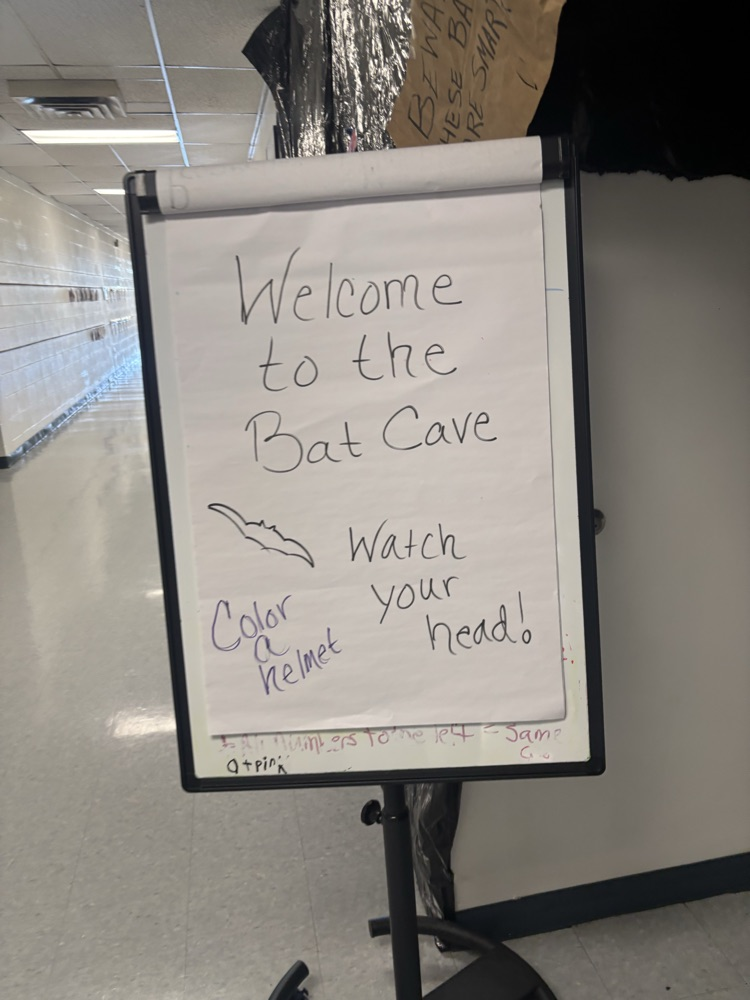 BEWA
HESE BA
RE SMAR
Welcome
to the
Bat Cave
Watch
your
head!
Color
a
helmet
to the left = same